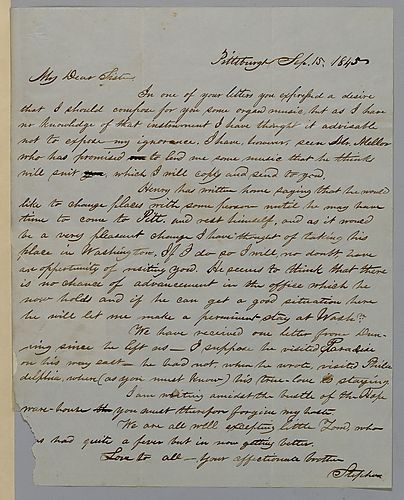 Pittsburgh Sep. 15, 1845
My Dear Sister,
In one of your letters you expressed a desire
that I should compose for you some organ music, but as I have
no knowledge of that instrument I have thought it advisable
not to expose my ignorance. I have, however, seen Mr. Mellor
who has promised to lend me some music that he thinks
will suit you, which I will copy and send to you.
Henry has written home saying that he would
like to change places with some person until he may have
time to come to Pitts, and rest himself, and as it would
be a very pleasant change I have thought of taking his
place in Washington. If I do so I will no doubt have
an opportunity of visiting you. He seems to think that there
is no chance of advancement in the office which he
now holds and if he can get a good situation here
he will let me make a perminent stay at Washn.
We have received one letter from Dun-
ning since he left us – I suppose he visited Paradise
on his way east – he had not, when he wrote, visited Phila-
delphia, where (as you must know) his true-love is staying.
I am writing amidst the bustle of the Hope
ware-house you must therefore forgive my haste.
We are all well excepting little Tom, who
has had quite a fever but is now getting better.
Love to all – Your affectionate brother
Stephen